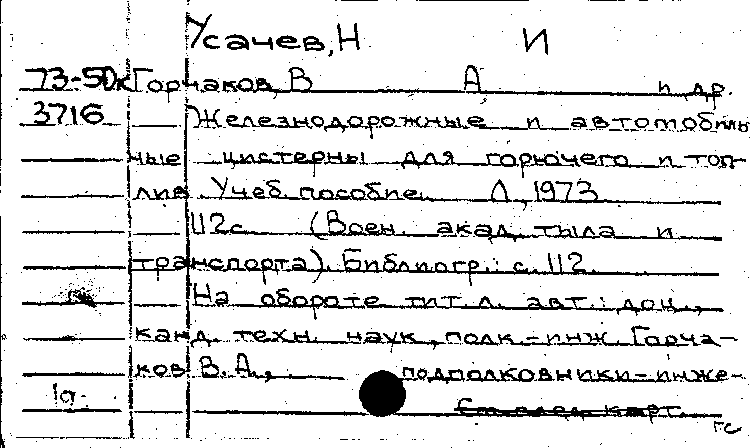 Усачев, Н И
73-50к Горчаков, В А, и др.
3716 Железнодорожные и автомобиль
ные цистерны для горючего и топ-
лив. Учеб. пособие. Л., 1973.
112с. (Воен. акад. тыла и
транспорта). Библиогр.: с. 112.
На обороте тит. л. авт.: доц.,
канд. техн. наук, полк.-инж. Горча-
ков В. А., подполковники-инже-
1д. См. след. карт.
гс